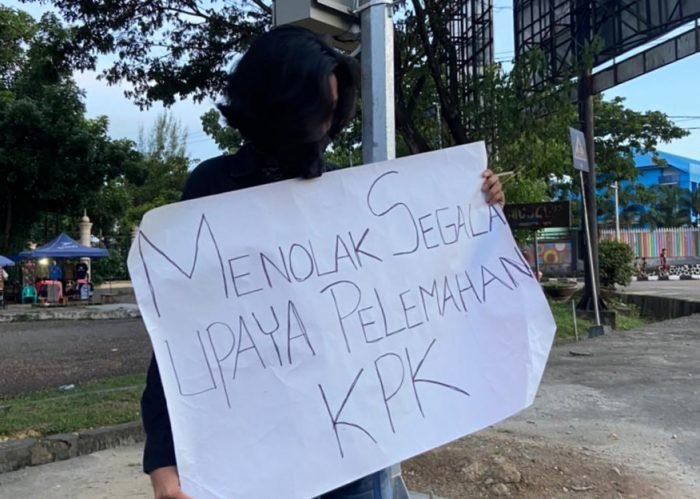 MENOLAK SEGALA
UPAYA PELEMAHAN
KPK